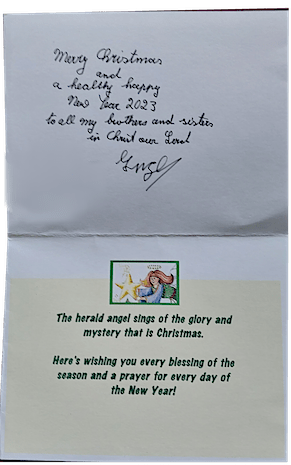 Merry Christmas
and
a healthy happy
New Year 2023
to all my brothers and sisters
in Christ our Lord
The herald angel sings of the glory and
mystery that is Christmas.
Here's wishing you every blessing of the
season and a prayer for every day of
the New Year!